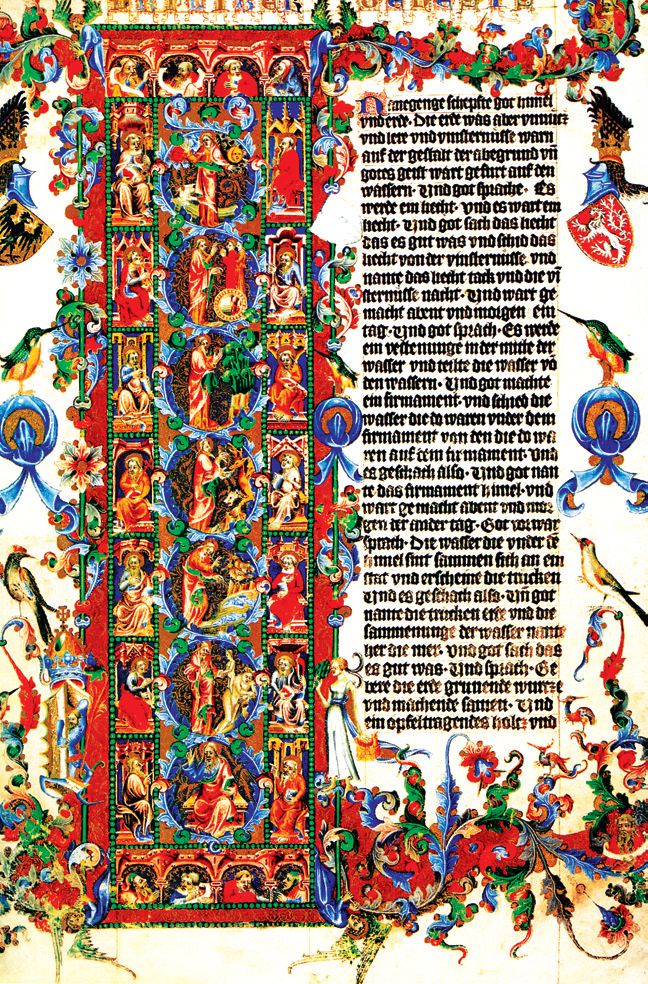 Anegenge schepfte got himel
vnd erde. Die erde was aber vnnutz
vnd lere vnd vinsternüsse warn
auf der gestalt der abegrund vn̄
gotes geist wart gefurt auf den
wassern. Vnd got sprache. Es
werde ein liecht. vnd es wart ein
liecht. Vnd got sach das liecht
das es gut was vnd schid das
liecht von der vinsternüsse. vnd
nante das liecht tack vnd die vī
sternüsse nacht. Vnd wart ge
macht abent vnd morgen ein
tag. Vnd got sprach. Es werde
ein vestenunge in der mitte der
wasser vnd teilte die wasser vō
den wassern. Vnd got machte
ein firmament. vnd schied die
wasser die do waren vnder dem
firmament von den die do wa
ren auf dem firmament. Vnd
es geschach also. Vnd got nan
te das firmament himel. vnd
wart gemacht abent vnd mor
gen der ander tag. Got vorwar
sprach. Die wasser die vnder dē
himel sint sammen sich an ein
stat vnd erscheine die trucken
Vnd es geschach also. Vn̄ got
nante die trucken erde vnd die
sammenunge der wasser nante
her die mer. vnd got sach das
es gut was. Vnd sprach. Ge
bere die erde grunende wurcze
vnd machende samen. Vnd
ein opfeltragendes holcz vnd